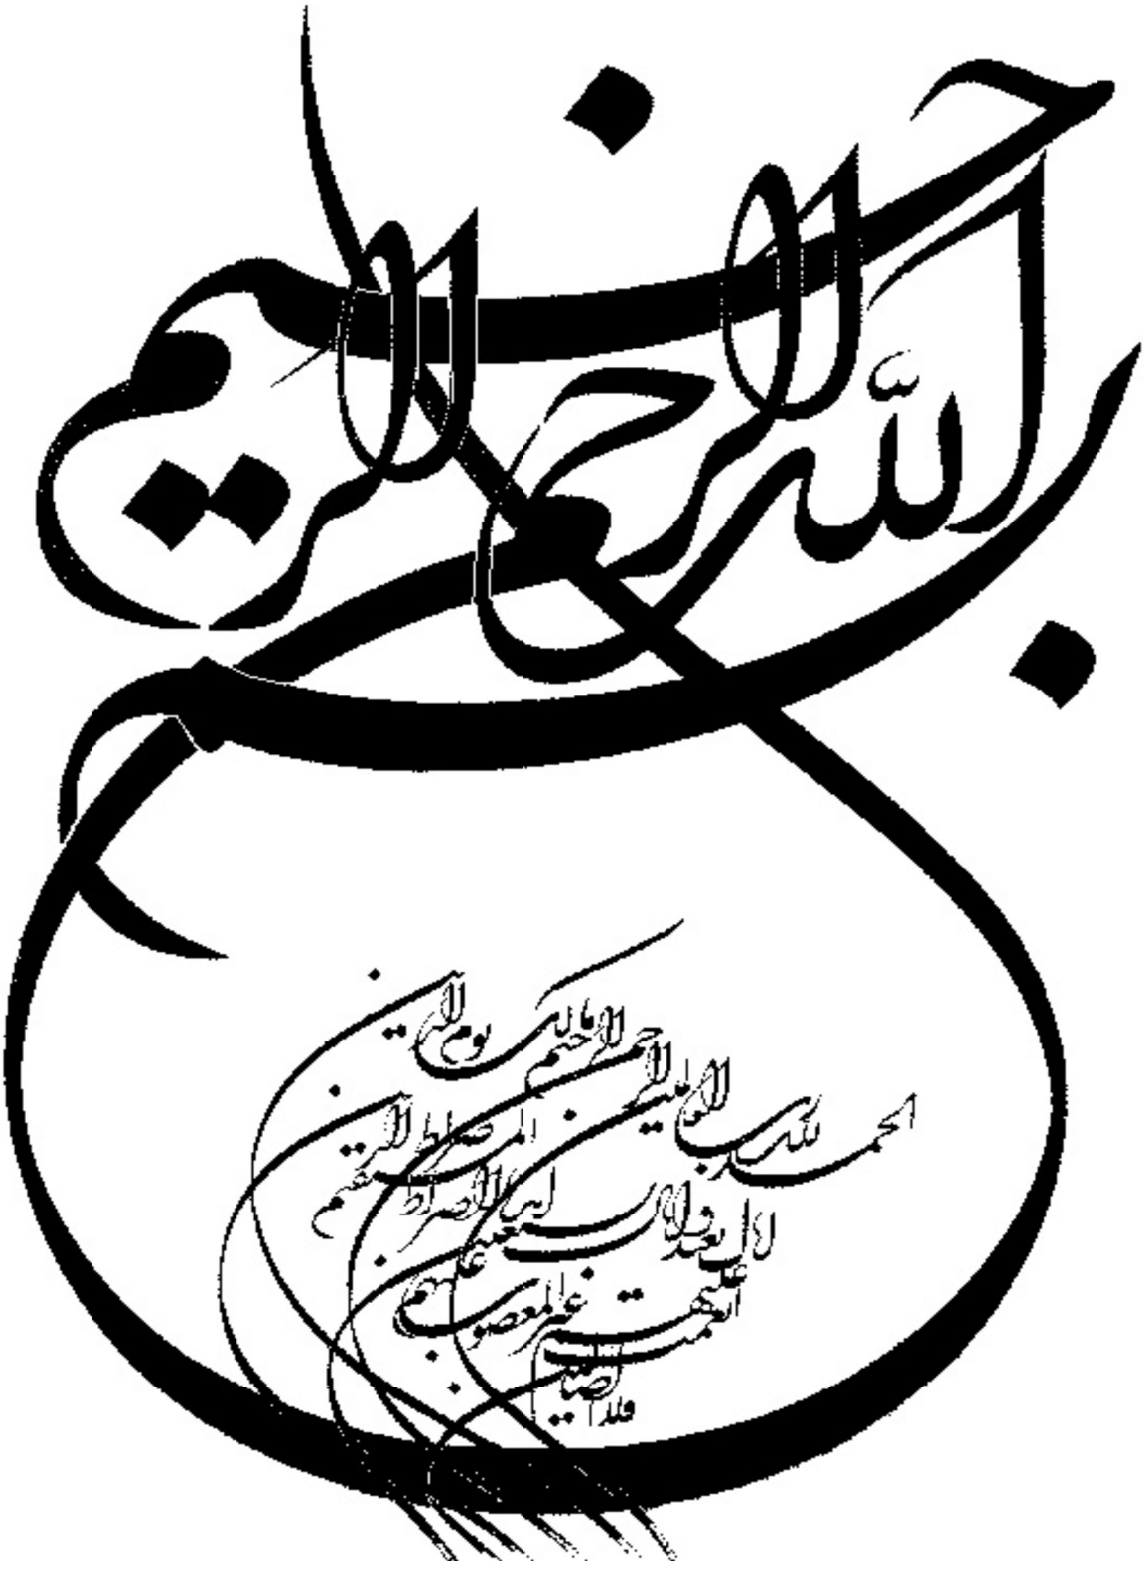 بسم الله الرحمن الرحیم
الحمد لله رب العالمین
الرحمن الرحیم
مالک یوم الدین
نعبد و
نستعین
اهدنا الصراط المستقیم
صراط الذین
انعمت علیهم
غیر المغضوب علیهم
ولا الضالین